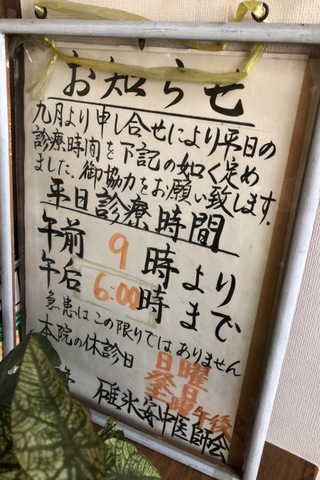 お知らせ
九月より申し合せにより平日の
診療時間を下記の如く定め
ました.御協力をお願い致します.
平日診療時間
午前 9 時より
午后 6:00 時まで
急患はこの限りではありません
本院の休診日 日曜
祭日
金曜午後
年 碓氷安中医師会